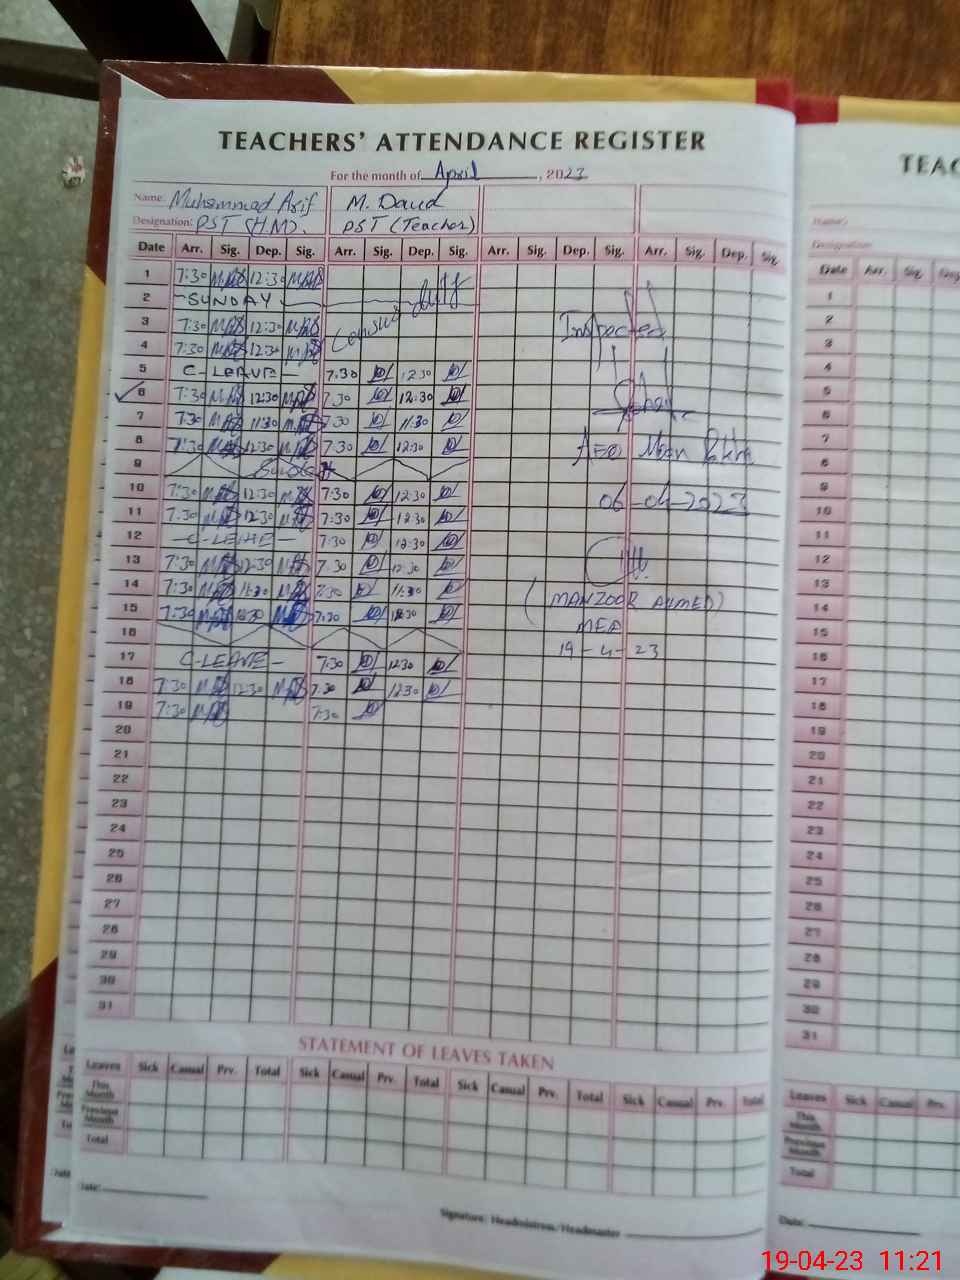 TEACHERS' ATTENDANCE REGISTER
TEAC
For the month of April, 2023
Name: Muhammad Arif M. Daud
Designation: PST (HM). PST (Teacher)
Name:
Designation
Date Arr. Sig. Dep. Sig. Arr. Sig. Dep. Sig. Arr. Sig. Dep. Sig. Arr. Sig. Dep. Sig.
Date Arr. Sig. Dep
1 7:30 12:30
2 SUNDAY
3 7:30 12:30 Census duty Inspected
4 7:30 12:30
5 C-LEAVE- 7.30 12:30
6 7:30 12:30 7.30 12:30
7 7:30 11:30 7.30 11:30
8 7:30 12:30 7.30 12:30 AEO
9 Sunday
10 7:30 12:30 7:30 12:30 06-04-2023
11 7:30 12:30 7:30 12:30
12 -C-LEAVE- 7:30 12:30
13 7:30 12:30 7.30 12:30
14 7:30 11:30 7:30 11:30 (MANZOOR AHMED)
15 7:30 12:30 7:30 12:30 MEA
16 19-4-23
17 C-LEAVE- 7:30 12:30
18 7:30 12:30 7:30 12:30
19 7:30 7:30
20
21
22
23
24
25
26
27
28
29
30
31
1
2
3
4
5
6
7
8
9
10
11
12
13
14
15
16
17
18
19
20
21
22
23
24
25
26
27
28
29
30
31
STATEMENT OF LEAVES TAKEN
Leaves Sick Casual Prv. Total Sick Casual Prv. Total Sick Casual Prv. Total Sick Casual Prv. Total
This Month
Previous Month
Total
Leaves Sick Casual Prv.
This Month
Previous Month
Total
Date:
Signature: Headmistress/Headmaster
Date:
19-04-23 11:21